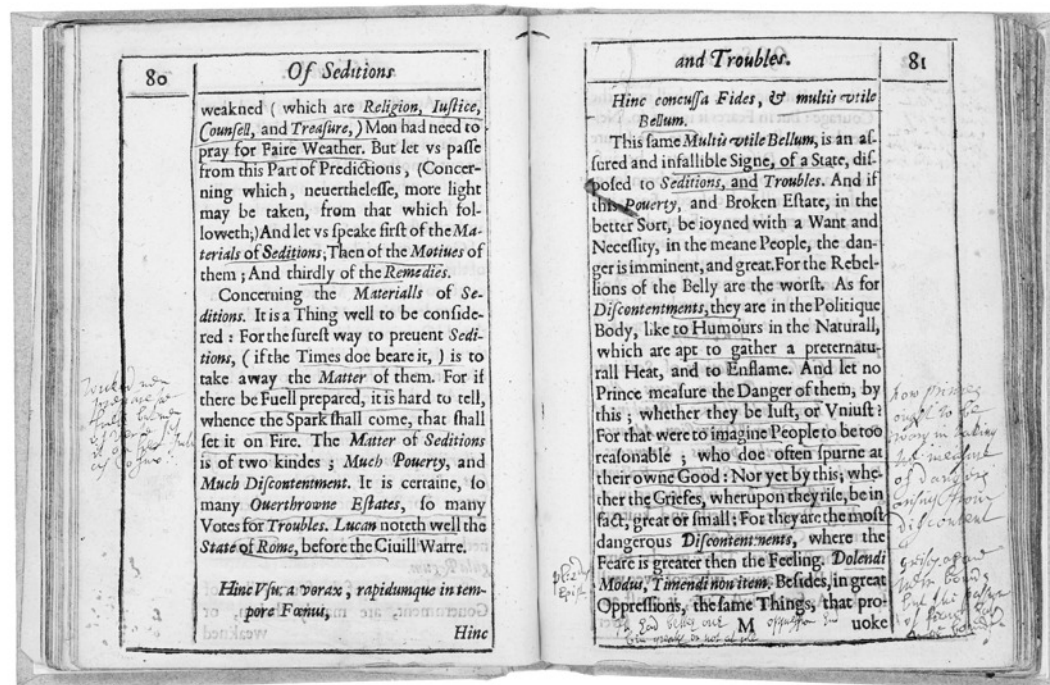 80
Of Seditions
weakned ( which are Religion, Iuſtice,
Counſell, and Treaſure, ) Mon had need to
pray for Faire Weather. But let vs paſſe
from this Part of Predictions , (Concer-
ning which, neuertheleſſe, more light
may be taken, from that which fol-
loweth;) And let vs ſpeake firſt of the Ma-
terials of Seditions; Then of the Motiues of
them ; And thirdly of the Remedies.
Concerning the Materialls of Se-
ditions. It is a Thing well to be conſide-
red : For the ſureſt way to preuent Sedi-
tions, ( if the Times doe beare it, ) is to
take away the Matter of them. For if
there be Fuell prepared, it is hard to tell,
whence the Spark ſhall come, that ſhall
ſet it on Fire. The Matter of Seditions
is of two kindes ; Much Pouerty, and
Much Diſcontentment. It is certaine, ſo
many Ouerthrowne Eſtates, ſo many
Votes for Troubles. Lucan noteth well the
State of Rome, before the Ciuill Warre.
Hinc Vſura vorax, rapidumque in tem-
pore Fœnus,
Hinc
and Troubles.
81
Hinc concuſſa Fides, & multis vtile
Bellum.
This ſame Multis vtile Bellum, is an aſ-
ſured and infallible Signe, of a State, diſ-
poſed to Seditions, and Troubles. And if
this Pouerty, and Broken Eſtate, in the
better Sort, be ioyned with a Want and
Neceſſity, in the meane People, the dan-
ger is imminent, and great. For the Rebel-
lions of the Belly are the worſt. As for
Diſcontentments, they are in the Politique
Body, like to Humours in the Naturall,
which are apt to gather a preternatu-
rall Heat, and to Enflame. And let no
Prince meaſure the Danger of them, by
this ; whether they be Iuſt, or Vniuſt ?
For that were to imagine People to be too
reaſonable ; who doe often ſpurne at
their owne Good : Nor yet by this; whe-
ther the Griefes, wherupon they riſe, be in
fact, great or ſmall : For they are the moſt
dangerous Diſcontentments, where the
Feare is greater then the Feeling. Dolendi
Modus, Timendi non item. Beſides, in great
Oppreſſions, the ſame Things, that pro-
M uoke
how princes
ought to be
in taking
of
of dangers
ariſing from
diſcontent